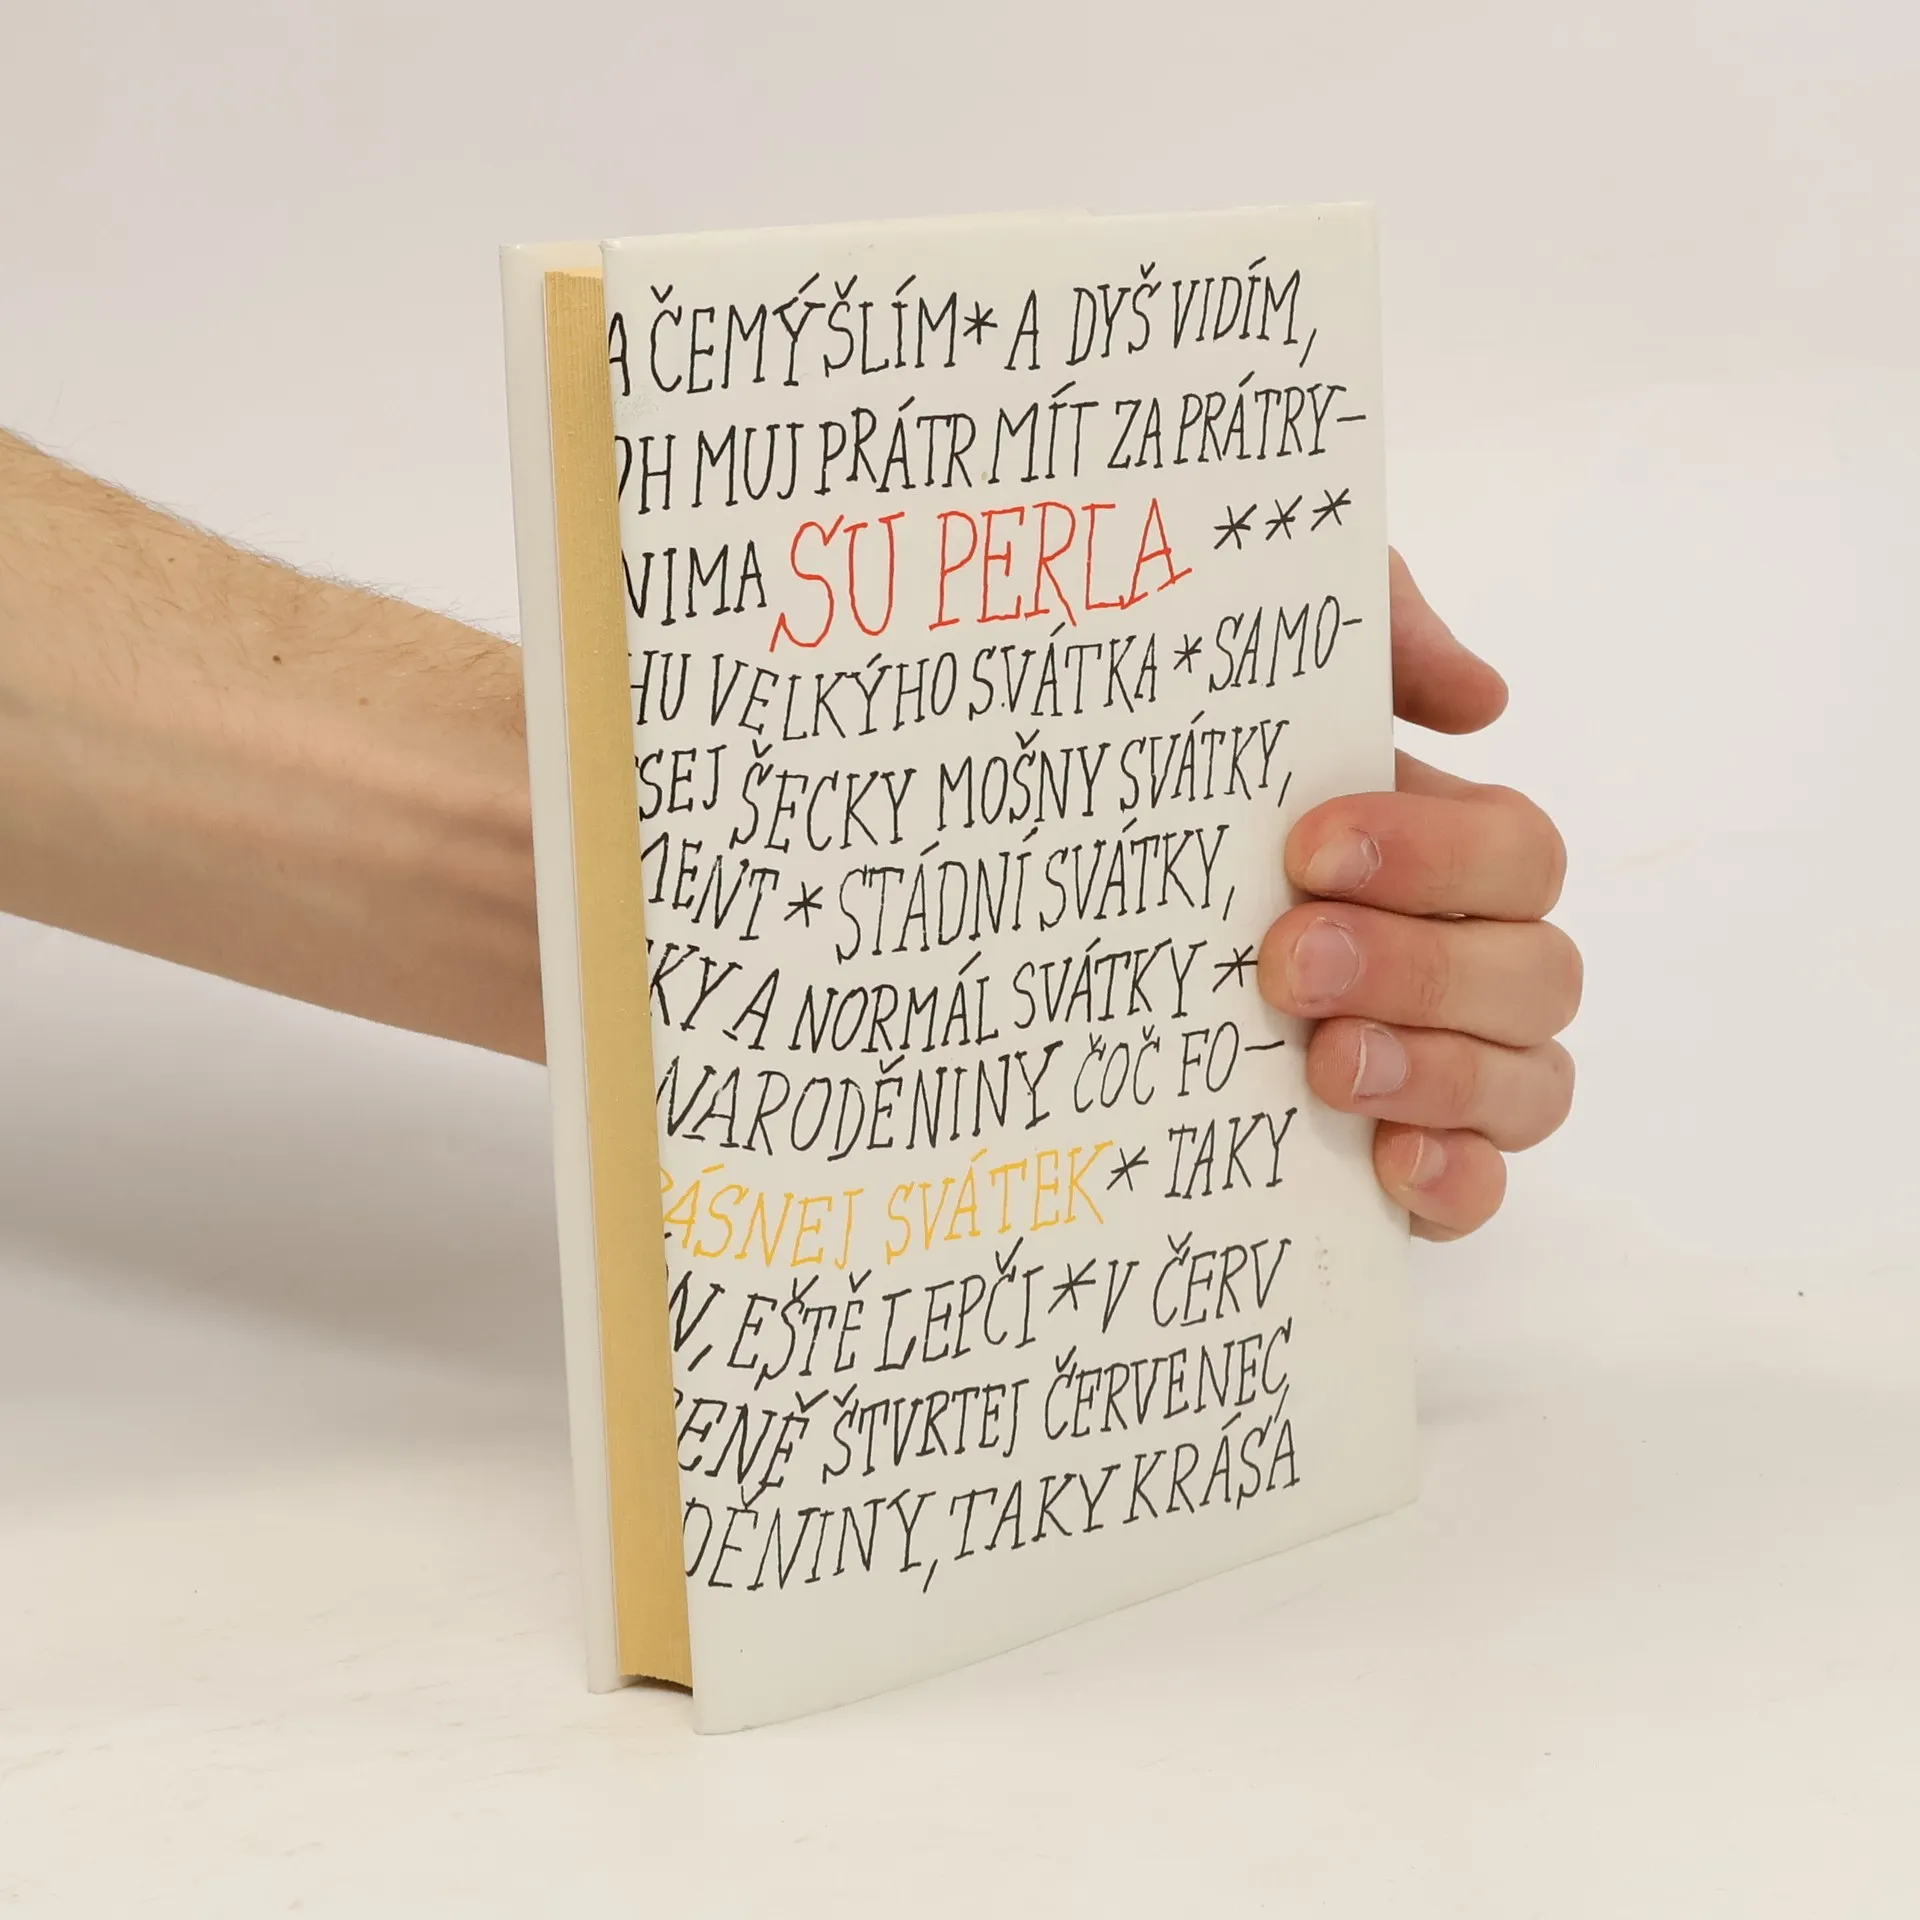 A ČEMÝŠLÍM * A DYŠ VIDÍM,
MUJ PRÁTR MÍT ZA PRÁTRY–
SU PERLA ***
VELKÝHO SVÁTKA * SAMO–
ŠECKY MOŠNY SVÁTKY,
* STÁDNÍ SVÁTKY,
A NORMÁL SVÁTKY *
NARODĚNINY ČOČ FO–
SVÁTEK * TAKY
EŠTĚ LEPČI * V ČERV
ŠTVRTEJ ČERVENEC,
TAKY KRÁSA